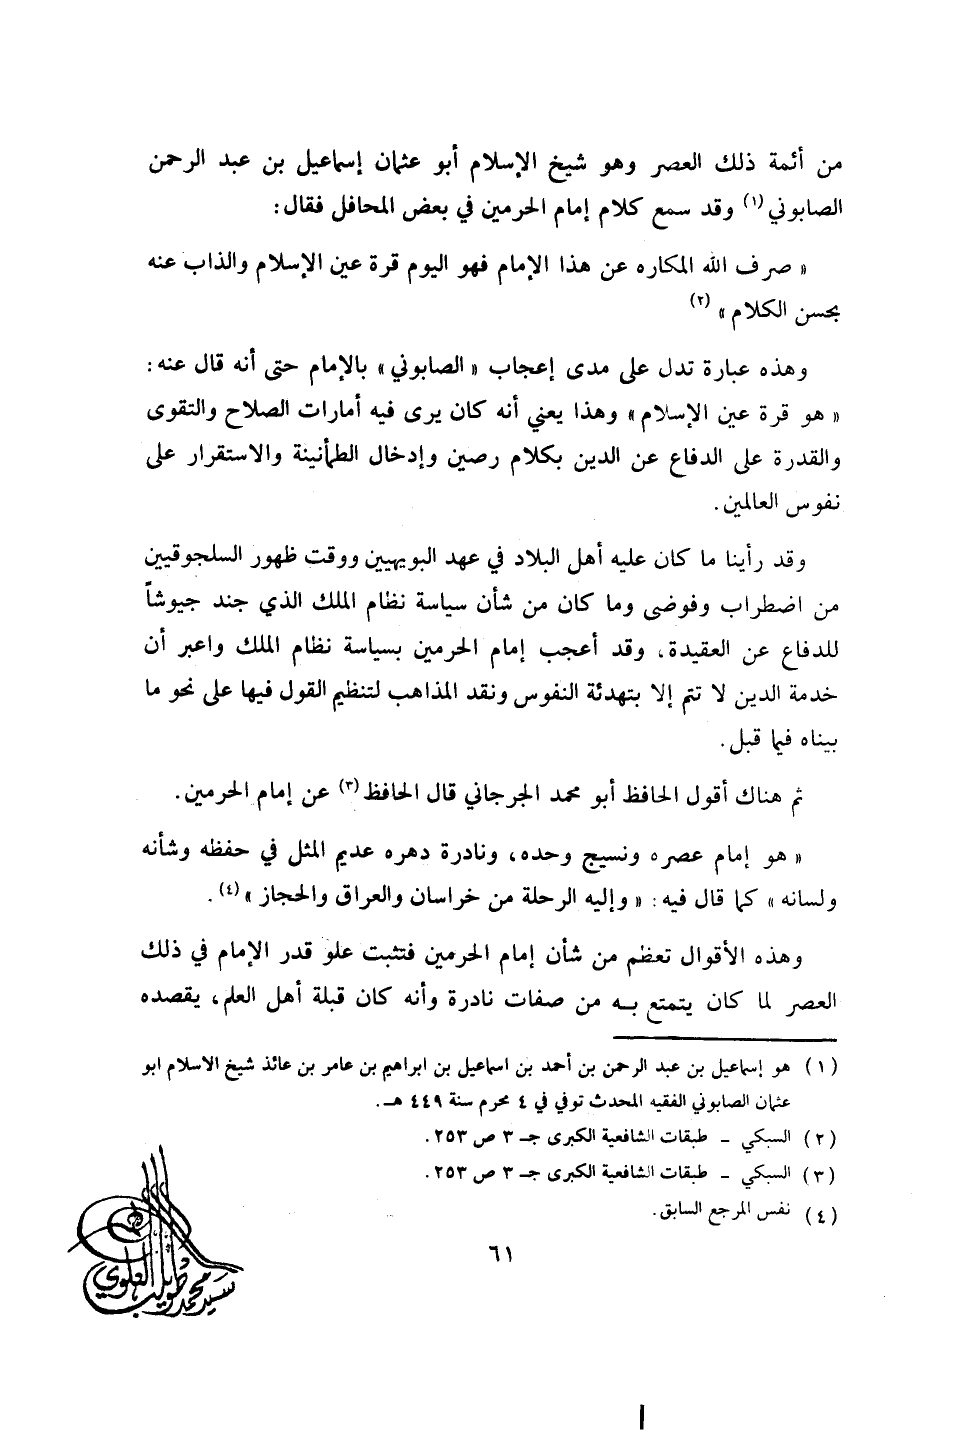 من أئمة ذلك العصر وهو شيخ الإسلام أبو عثمان إسماعيل بن عبد الرحمن
الصابوني (١) وقد سمع كلام إمام الحرمين في بعض المحافل فقال:
« صرف الله المكاره عن هذا الإمام فهو اليوم قرة عين الإسلام والذاب عنه
بحسن الكلام » (٢)
وهذه عبارة تدل على مدى إعجاب « الصابوني » بالإمام حتى أنه قال عنه :
« هو قرة عين الإسلام » وهذا يعني أنه كان يرى فيه أمارات الصلاح والتقوى
والقدرة على الدفاع عن الدين بكلام رصين وإدخال الطمأنينة والاستقرار على
نفوس العالمين .
وقد رأينا ما كان عليه أهل البلاد في عهد البويهيين ووقت ظهور السلجوقيين
من اضطراب وفوضى وما كان من شأن سياسة نظام الملك الذي جند جيوشاً
للدفاع عن العقيدة، وقد أعجب إمام الحرمين بسياسة نظام الملك واعبر أن
خدمة الدين لا تتم إلا بتهدئة النفوس ونقد المذاهب لتنظيم القول فيها على نحو ما
بيناه فيما قبل .
ثم هناك أقول الحافظ أبو محمد الجرجاني قال الحافظ (٣) عن إمام الحرمين .
« هو إمام عصره ونسيج وحده، ونادرة دهره عديم المثل في حفظه وشأنه
ولسانه » كما قال فيه : « وإليه الرحلة من خراسان والعراق والحجاز » (٤) .
وهذه الأقوال تعظم من شأن إمام الحرمين فتثبت علو قدر الإمام في ذلك
العصر لما كان يتمتع بـه من صفات نادرة وأنه كان قبلة أهل العلم، يقصده
(١) هو إسماعيل بن عبد الرحمن بن أحمد بن اسماعيل بن ابراهيم بن عامر بن عائذ شيخ الاسلام ابو
عثمان الصابوني الفقيه المحدث توفي في ٤ محرم سنة ٤٤٩ هـ .
(٢) السبكي - طبقات الشافعية الكبرى جـ ٣ ص ٢٥٣ .
(٣) السبكي - طبقات الشافعية الكبرى جـ ٣ ص ٢٥٣ .
(٤) نفس المرجع السابق .
٦١
سيد محمد طويلب العلوي